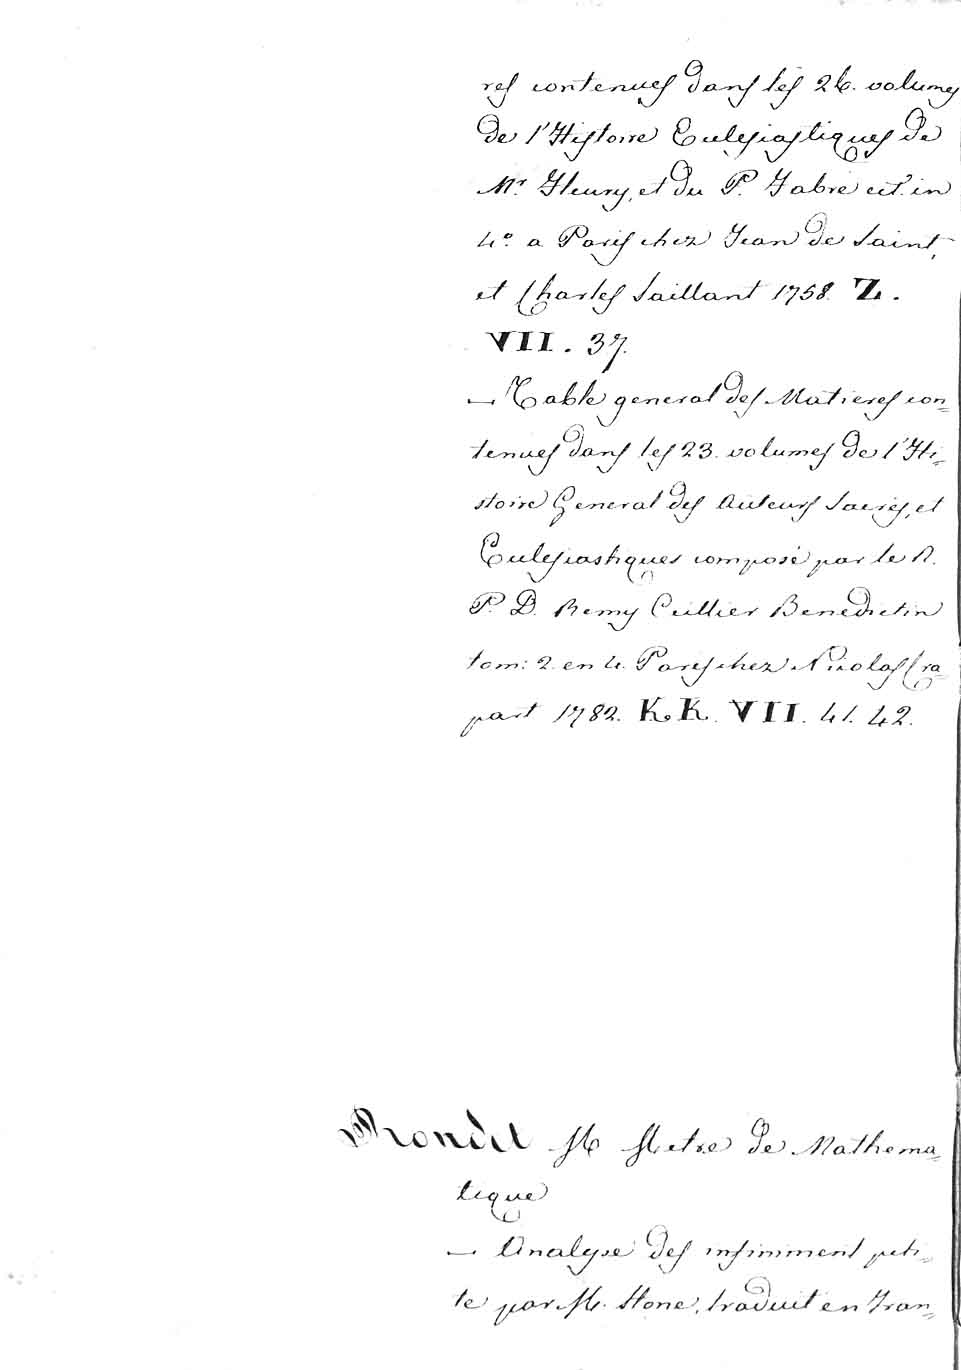 res contenues dans les 26. volumes
de l'Histoire Eclesiastiques de
Mr. Fleury, et du P. Fabre ect. in
4.o a Paris chez Jean de Saint,
et Charles Saillant 1758. Z.
VII. 37.
— Table general des Matieres con=
tenues dans les 23. volumes de l'Hi=
stoire General des Auteurs Sacrés, et
Eclesiastiques composé par le R.
P. D. Remy Ceillier Benedictin
tom: 2. en 4. Paris chez Nicolas Cra=
part 1782. K.K. VII. 41. 42.
Rondet M Metre de Mathema=
tique
— Analyse des infiniment peti=
te par M. Stone, traduit en Fran=